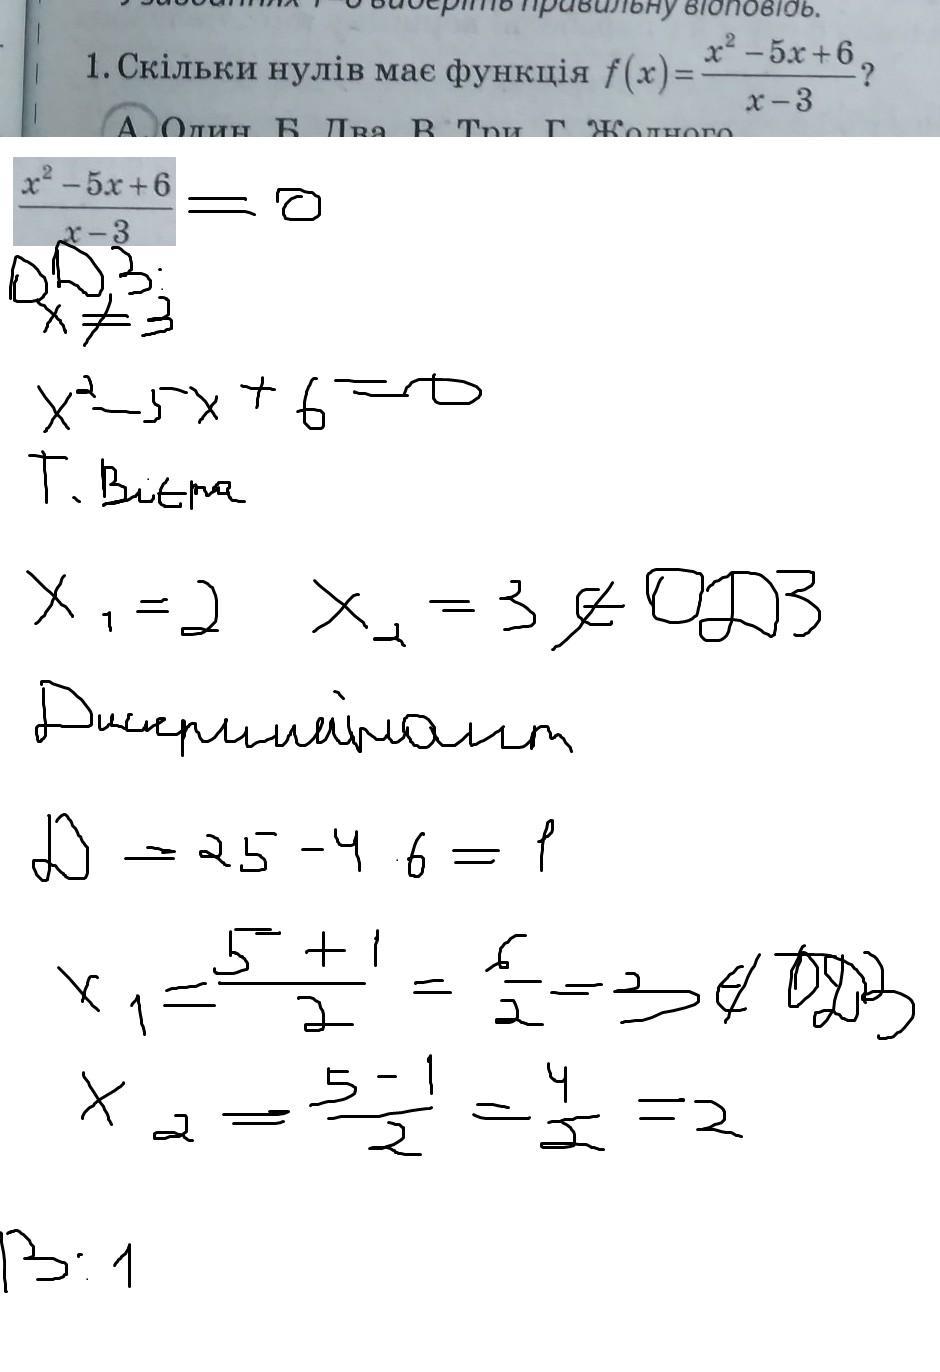 у завданнях 1–6 виберіть правильну відповідь.
1. Скільки нулів має функція f(x) = (x² − 5x + 6)/(x − 3)?
А. Один Б. Два В. Три Г. Жодного
(x² − 5x + 6)/(x − 3) = 0
ОДЗ:
x ≠ 3
x² − 5x + 6 = 0
Т. Вієта
x₁ = 2 x₂ = 3 ∉ ОДЗ
Дискримінант
D = 25 − 4 · 6 = 1
x₁ = (5 + 1)/2 = 6/2 = 3 ∉ ОДЗ
x₂ = (5 − 1)/2 = 4/2 = 2
В: 1